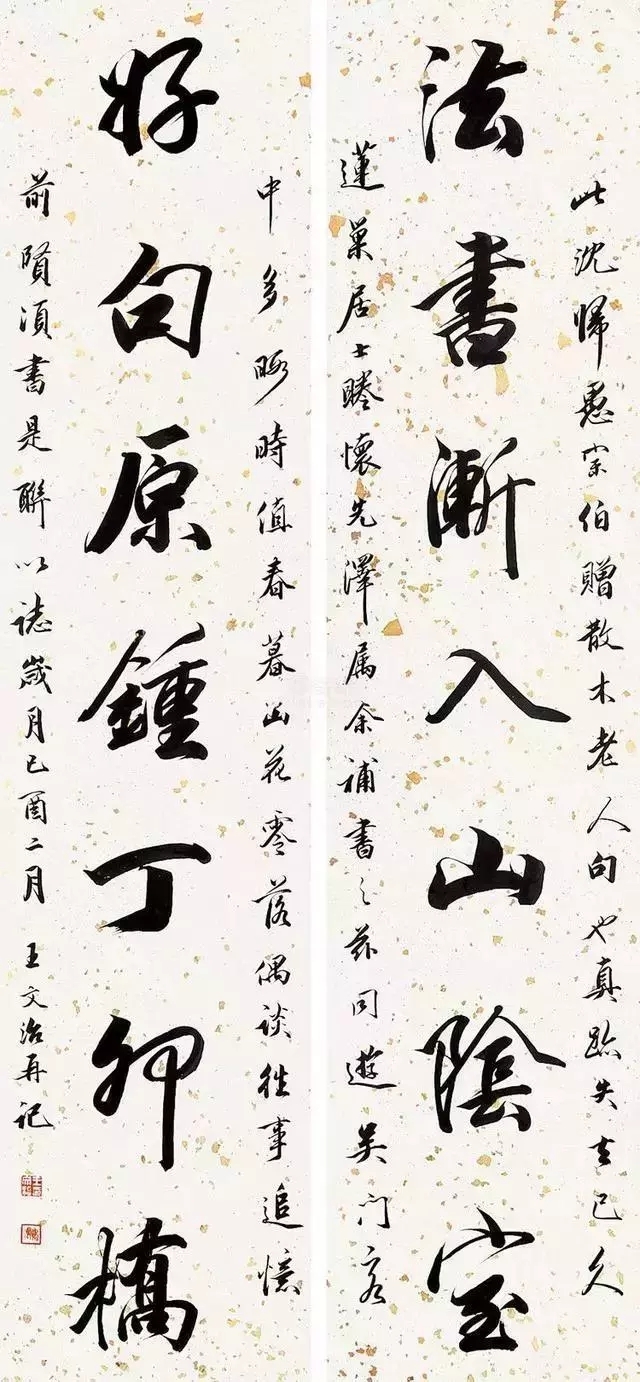 此沈歸愚宗伯贈散木老人句也真跡失去已久
法書漸入山陰室
蓮巢居士睠懷先澤属余補書之茲同遊吴門客
中多暇時值春暮花零落偶談往事追憶
好句原鍾丁卯橋
前書是聯以誌歲月己酉二月 王文治再記